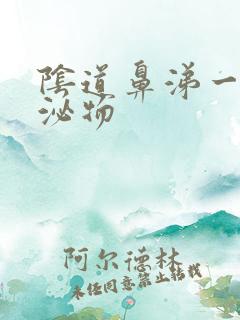 陰道鼻涕一
泌物
阿尔德林
未经同意禁止转载